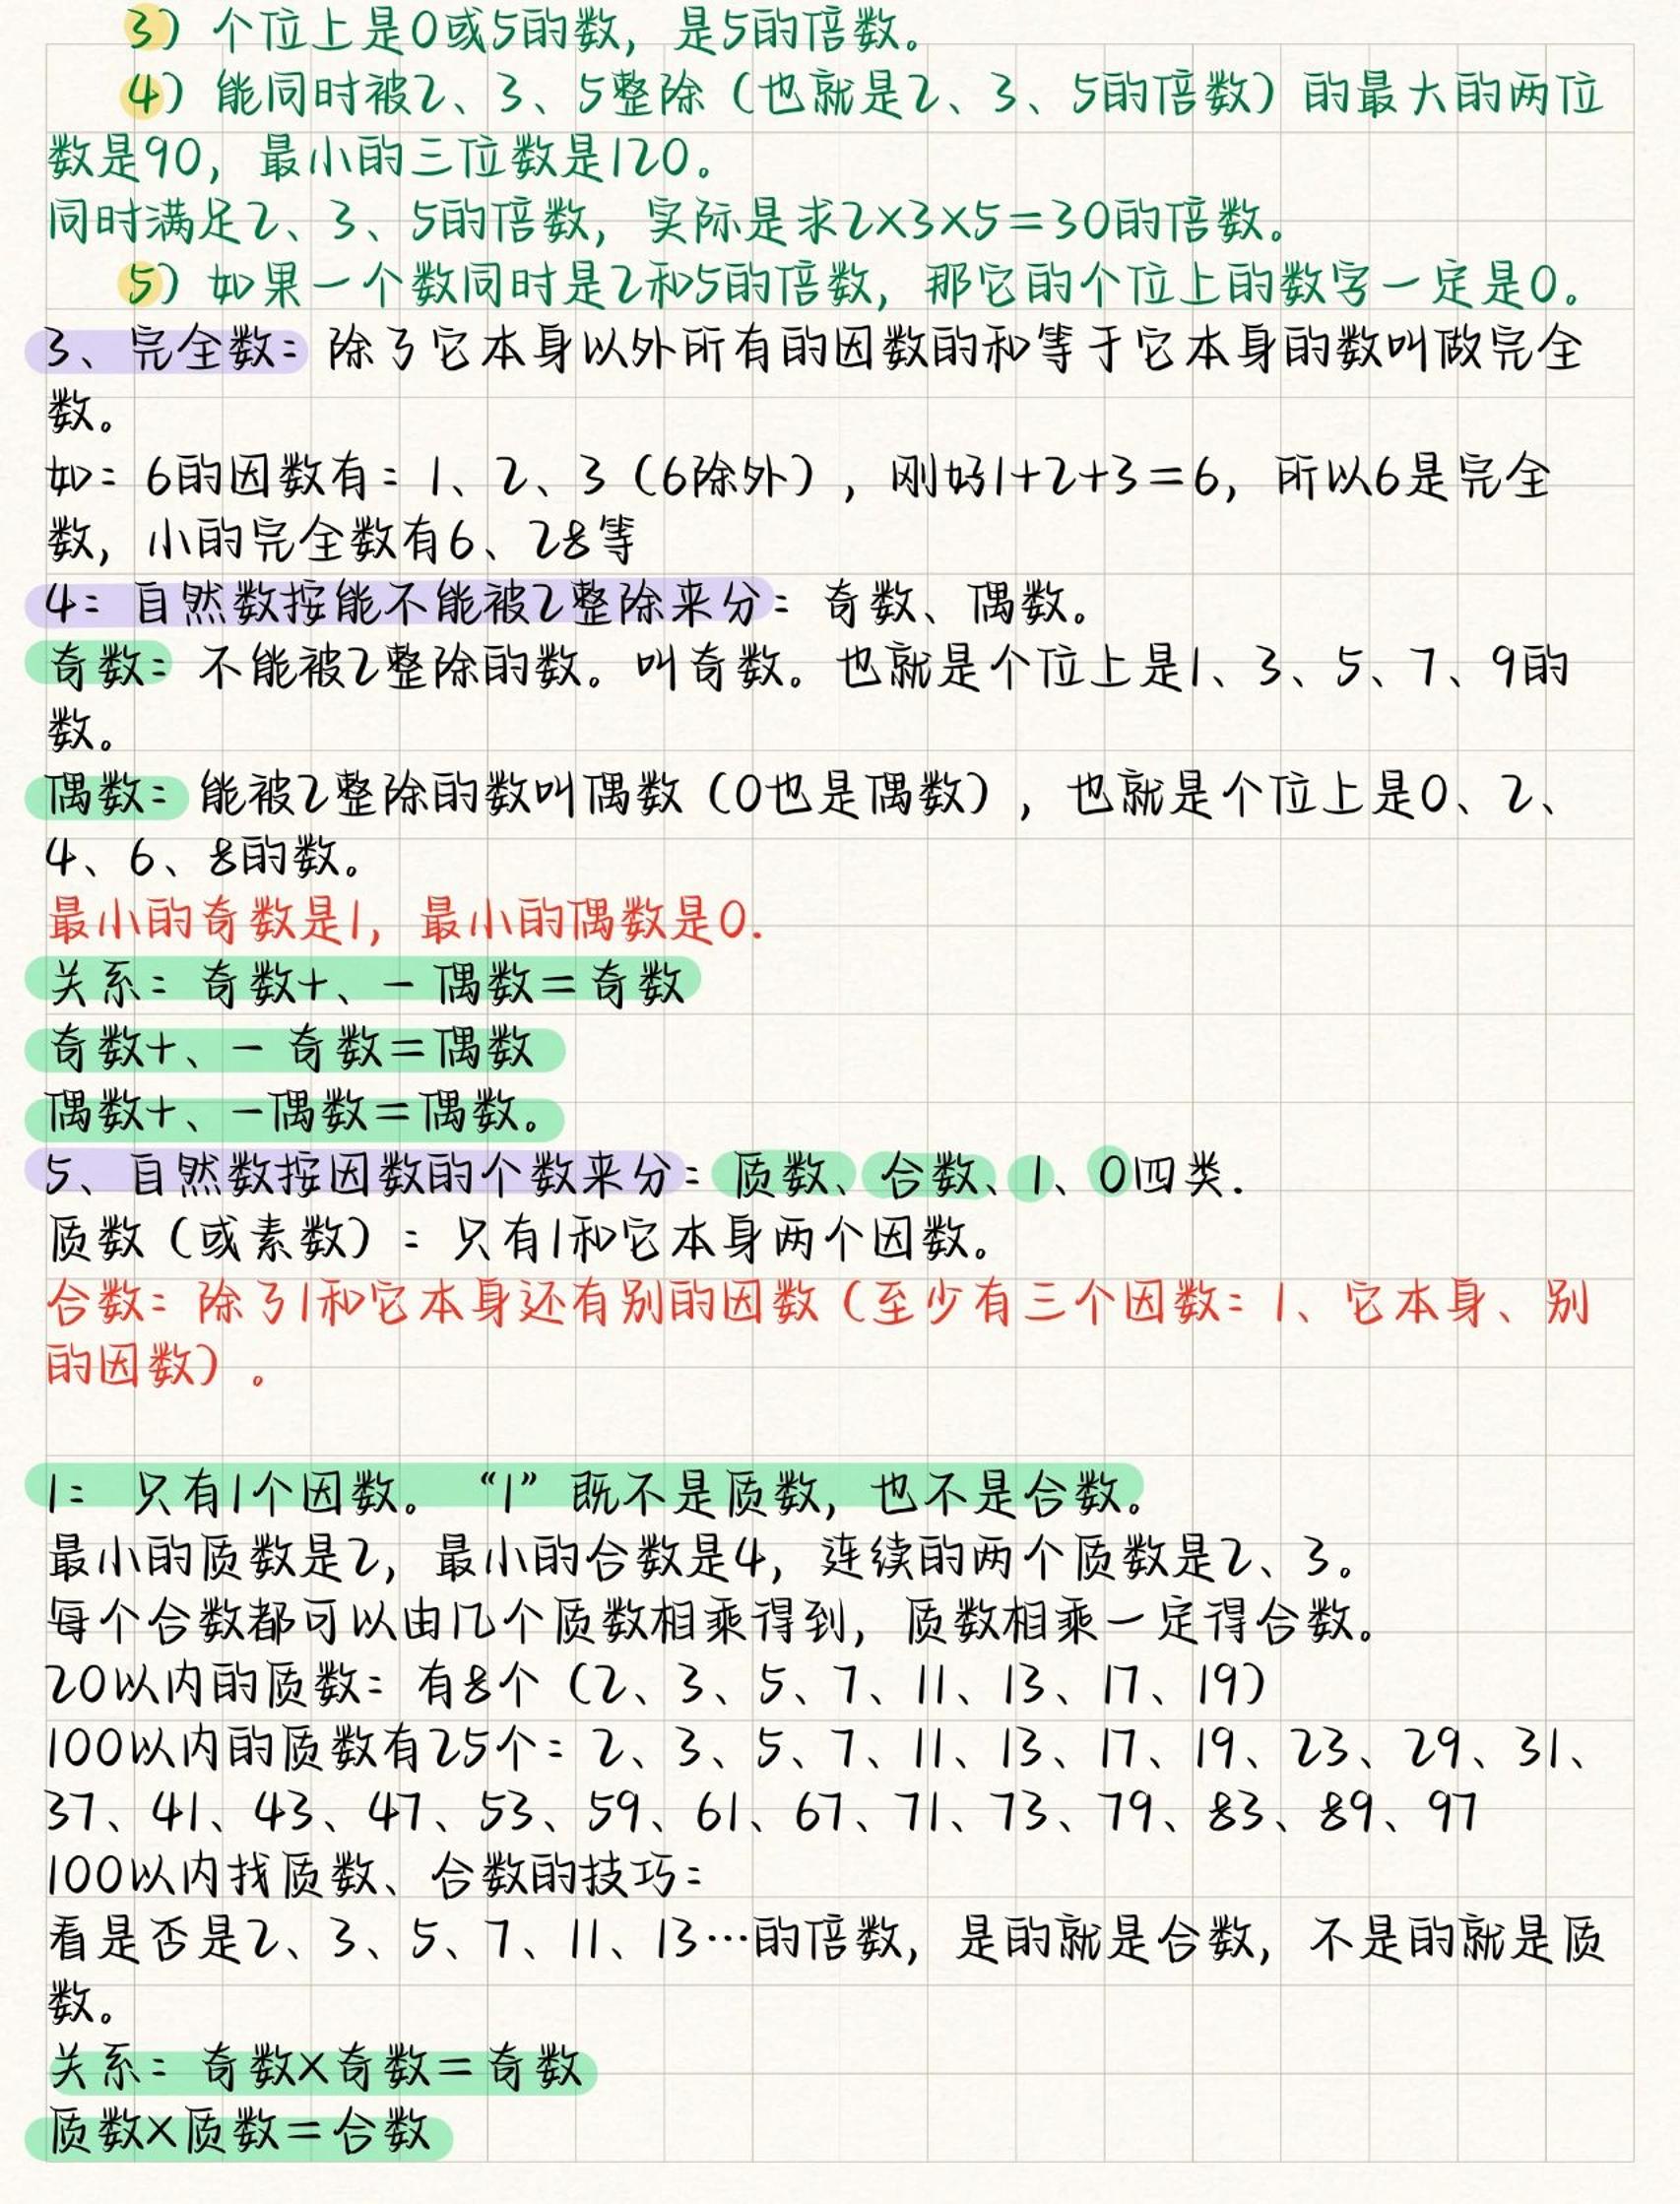 3）个位上是0或5的数，是5的倍数。
4）能同时被2、3、5整除（也就是2、3、5的倍数）的最大的两位
数是90，最小的三位数是120。
同时满足2、3、5的倍数，实际是求2×3×5=30的倍数。
5）如果一个数同时是2和5的倍数，那它的个位上的数字一定是0。
3、完全数：除了它本身以外所有的因数的和等于它本身的数叫做完全
数。
如：6的因数有：1、2、3（6除外），刚好1+2+3=6，所以6是完全
数，小的完全数有6、28等
4：自然数按能不能被2整除来分：奇数、偶数。
奇数：不能被2整除的数。叫奇数。也就是个位上是1、3、5、7、9的
数。
偶数：能被2整除的数叫偶数（0也是偶数），也就是个位上是0、2、
4、6、8的数。
最小的奇数是1，最小的偶数是0.
关系：奇数+、- 偶数=奇数
奇数+、- 奇数=偶数
偶数+、-偶数=偶数。
5、自然数按因数的个数来分：质数、合数、1、0四类.
质数（或素数）：只有1和它本身两个因数。
合数：除了1和它本身还有别的因数（至少有三个因数：1、它本身、别
的因数）。
1： 只有1个因数。“1”既不是质数，也不是合数。
最小的质数是2，最小的合数是4，连续的两个质数是2、3。
每个合数都可以由几个质数相乘得到，质数相乘一定得合数。
20以内的质数：有8个（2、3、5、7、11、13、17、19）
100以内的质数有25个：2、3、5、7、11、13、17、19、23、29、31、
37、41、43、47、53、59、61、67、71、73、79、83、89、97
100以内找质数、合数的技巧：
看是否是2、3、5、7、11、13…的倍数，是的就是合数，不是的就是质
数。
关系：奇数×奇数=奇数
质数×质数=合数